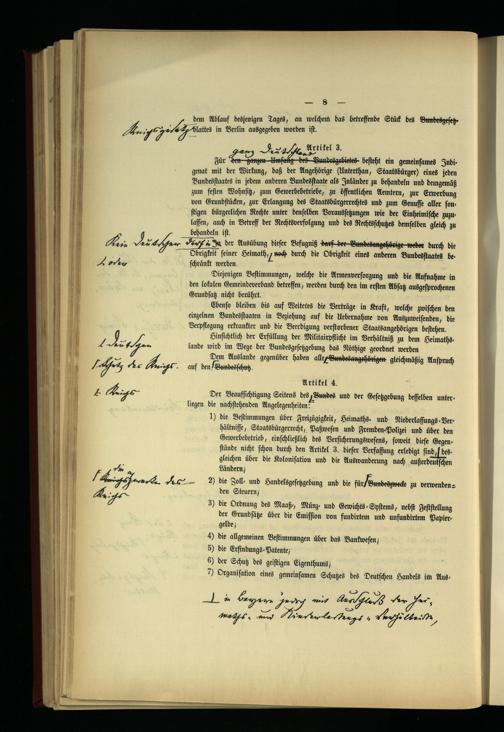 — 8 —
dem Ablauf desjenigen Tages, an welchem das betreffende Stück des Bundesgesetz-
Reichsgesetz blattes in Berlin ausgegeben worden ist.
Artikel 3.
ganz Deutschland
Für den ganzen Umfang des Bundesgebietes besteht ein gemeinsames Indi-
genat mit der Wirkung, daß der Angehörige (Unterthan, Staatsbürger) eines jeden
Bundesstaates in jedem anderen Bundesstaate als Inländer zu behandeln und demgemäß
zum festen Wohnsitz, zum Gewerbebetriebe, zu öffentlichen Aemtern, zur Erwerbung
von Grundstücken, zur Erlangung des Staatsbürgerrechtes und zum Genusse aller son-
stigen bürgerlichen Rechte unter denselben Voraussetzungen wie der Einheimische zuzu-
lassen, auch in Betreff der Rechtsverfolgung und des Rechtsschutzes demselben gleich zu
behandeln ist.
Kein Deutscher darf in der Ausübung dieser Befugniß darf der Bundesangehörige weder durch die
oder Obrigkeit seiner Heimath, noch durch die Obrigkeit eines anderen Bundesstaates be-
schränkt werden.
Diejenigen Bestimmungen, welche die Armenversorgung und die Aufnahme in
den lokalen Gemeindeverband betreffen, werden durch den im ersten Absatz ausgesprochenen
Grundsatz nicht berührt.
Ebenso bleiben bis auf Weiteres die Verträge in Kraft, welche zwischen den
einzelnen Bundesstaaten in Beziehung auf die Uebernahme von Auszuweisenden, die
Verpflegung erkrankter und die Beerdigung verstorbener Staatsangehörigen bestehen.
Hinsichtlich der Erfüllung der Militairpflicht im Verhältniß zu dem Heimaths-
lande wird im Wege der Bundesgesetzgebung das Nöthige geordnet werden
Deutschen
Dem Auslande gegenüber haben alle Bundesangehörigen gleichmäßig Anspruch
Schutz des Reichs. auf den Bundesschutz.
Artikel 4.
Reichs
Der Beaufsichtigung Seitens des Bundes und der Gesetzgebung desselben unter-
liegen die nachstehenden Angelegenheiten:
1) die Bestimmungen über Freizügigkeit, Heimaths- und Niederlassungs-Ver-
hältnisse, Staatsbürgerrecht, Paßwesen und Fremden-Polizei und über den
Gewerbebetrieb, einschließlich des Versicherungswesens, soweit diese Gegen-
stände nicht schon durch den Artikel 3. dieser Verfassung erledigt sind, des-
gleichen über die Kolonisation und die Auswanderung nach außerdeutschen
Ländern;
die
zwecke des
Reichs
2) die Zoll- und Handelsgesetzgebung und die für Bundeszwecke zu verwenden-
den Steuern;
3) die Ordnung des Maaß-, Münz- und Gewichts-Systems, nebst Feststellung
der Grundsätze über die Emission von fundirtem und unfundirtem Papier-
gelde;
4) die allgemeinen Bestimmungen über das Bankwesen;
5) die Erfindungs-Patente;
6) der Schutz des geistigen Eigenthums;
7) Organisation eines gemeinsamen Schutzes des Deutschen Handels im Aus-
in Bayern jedoch mit Ausschluß der Hei-
maths- und Niederlassungs-Verhältnisse,